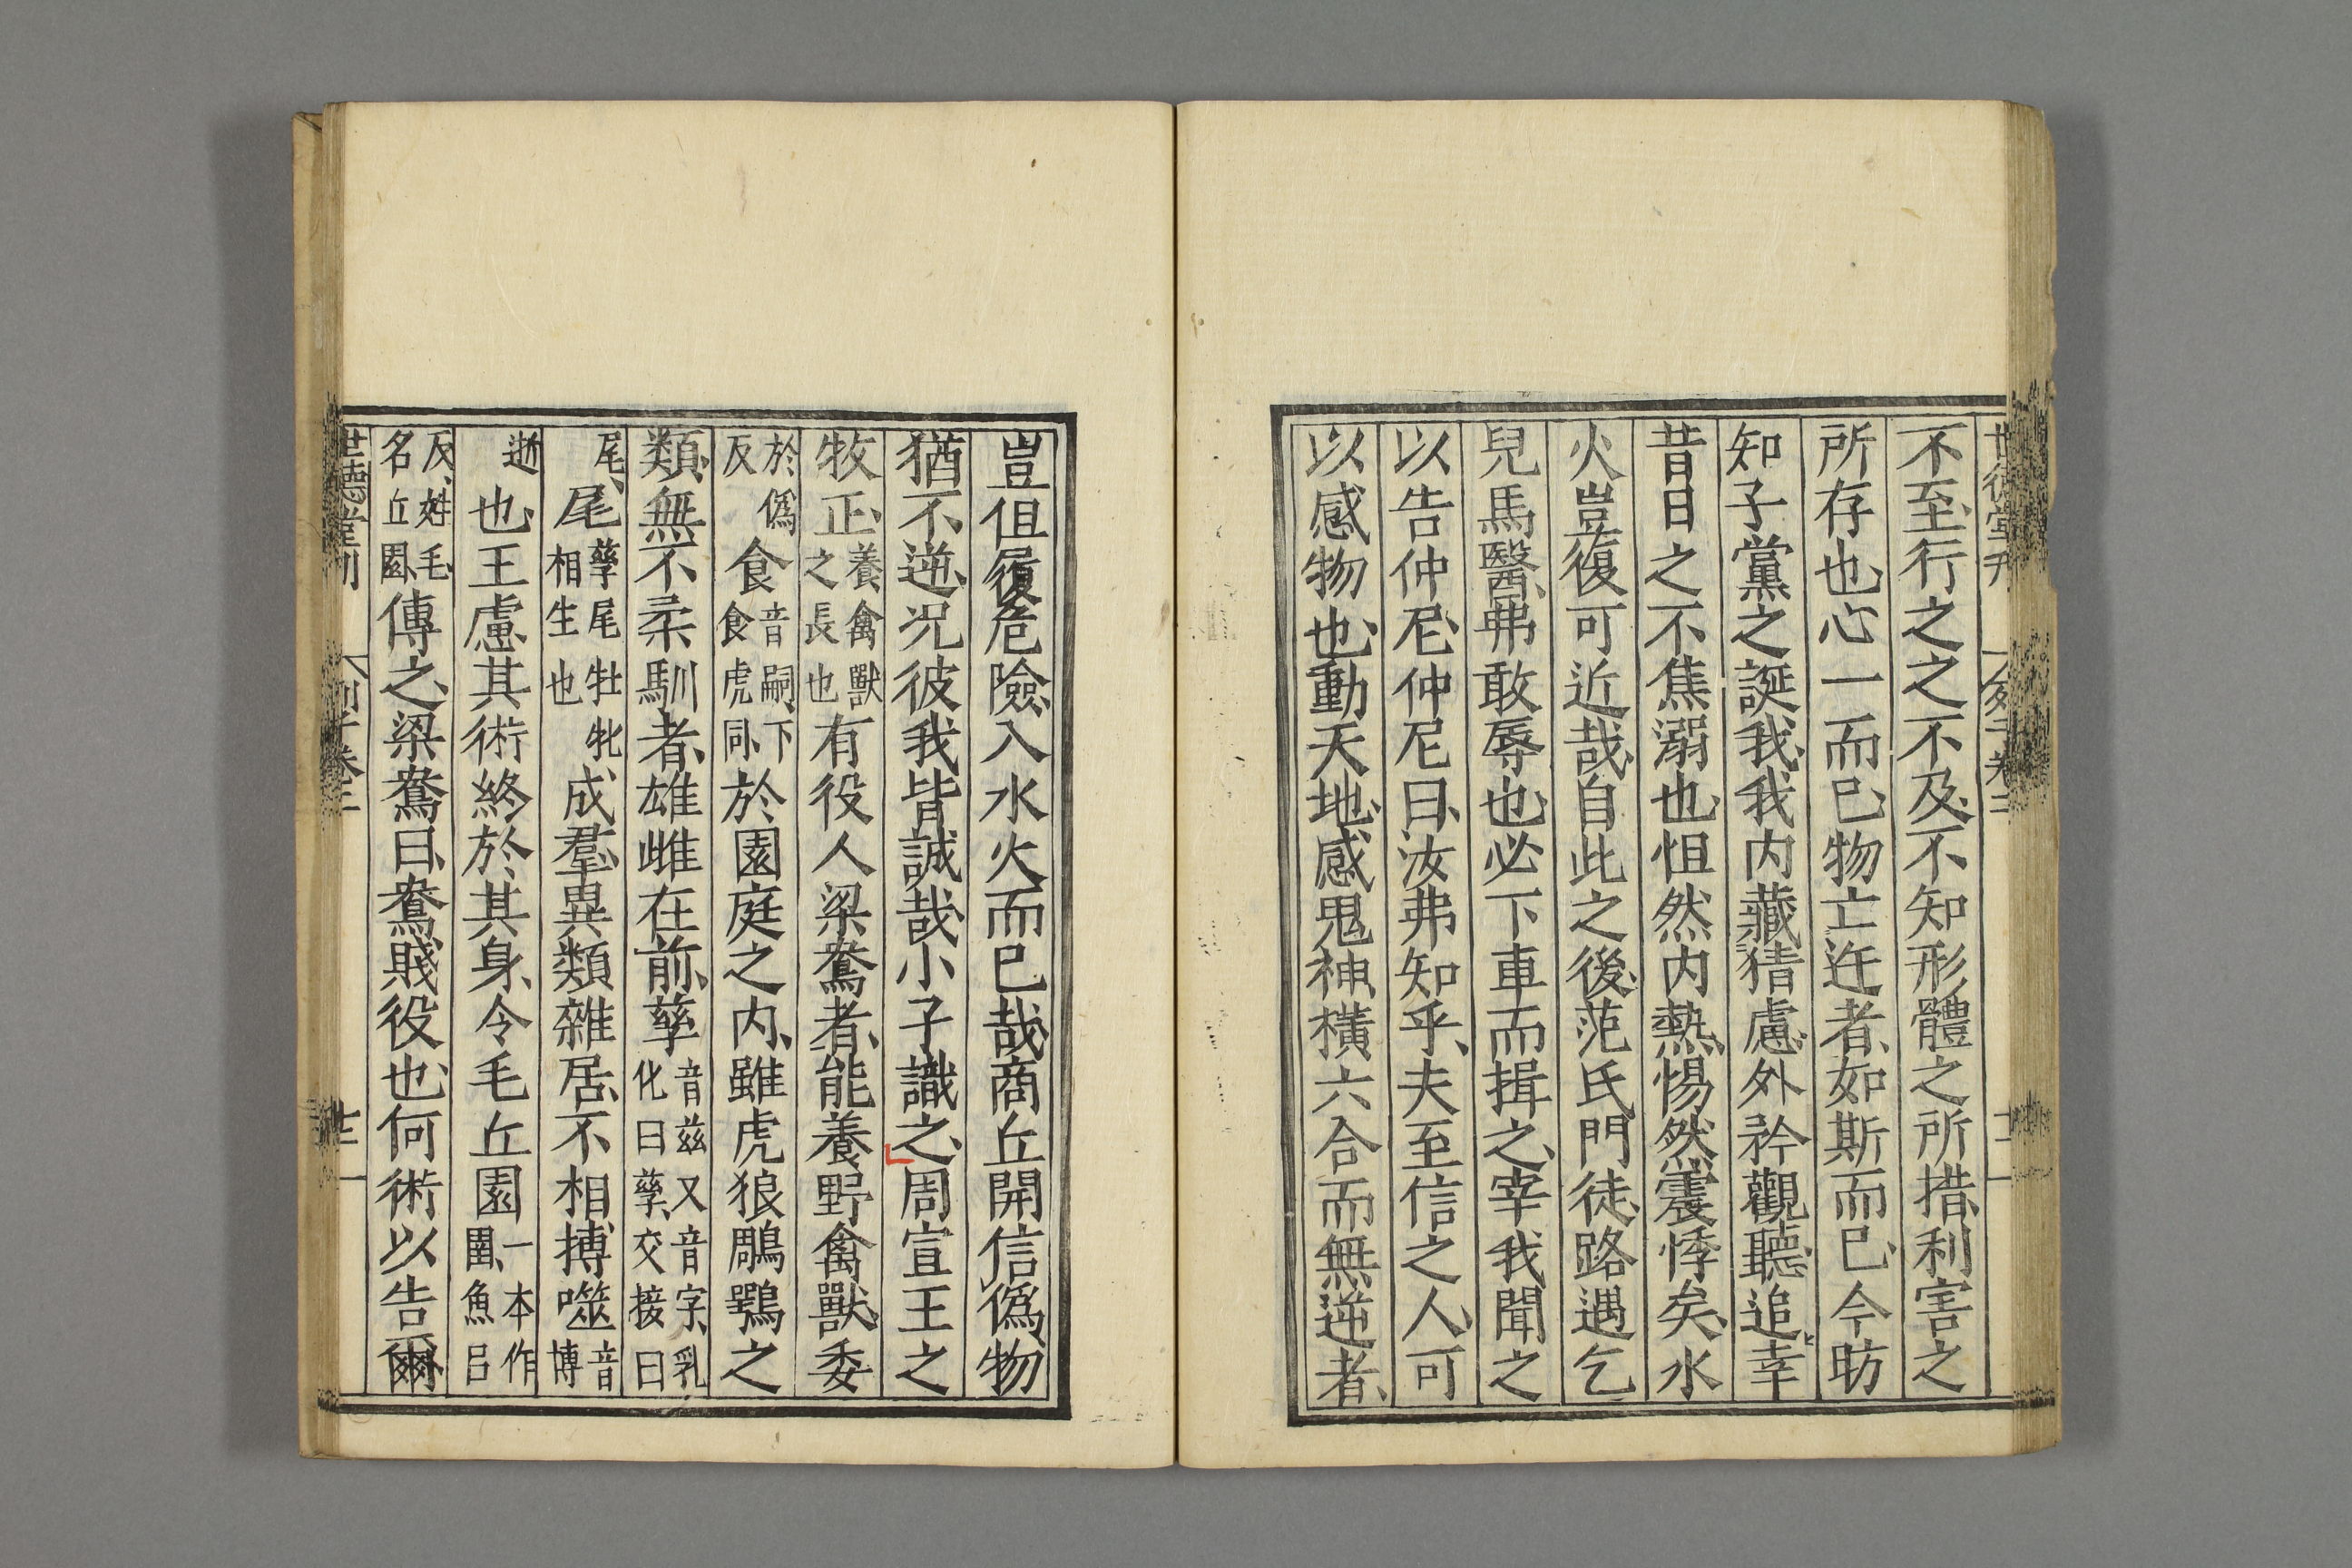 不至、行之之不及、不知形體之所措、利害之
所存也、心一而已、物亡迕者、如斯而已、今昉
知子黨之誕我、我内藏猜慮、外矜觀聽、追幸
昔日之不焦溺也、怛然内熱、惕然震悸矣、水
火豈復可近哉、自此之後、范氏門徒、路遇乞
兒馬醫、弗敢辱也、必下車而揖之、宰我聞之
以告仲尼、仲尼曰、汝弗知乎、夫至信之人、可
以感物也、動天地、感鬼神、橫六合、而無逆者、
豈但履危險、入水火而已哉、商丘開信僞物
猶不逆、况彼我皆誠哉、小子識之、周宣王之
牧正、養禽獸之長也有役人梁鴦者、能養野禽獸、委
於僞反食音嗣、下食虎同、於園庭之内、雖虎狼鵰鶚之
類、無不柔馴者、雄雌在前、孳音兹又音字、乳化曰孳、交接曰
尾、尾孳尾牡牝相生也成羣、異類雜居、不相搏噬音博
逝也、王慮其術終於其身、令毛丘園一本作圉、魚呂
反、姓毛名丘園、傳之、梁鴦曰、鴦賤役也、何術以告爾
世德堂刊 列子卷二